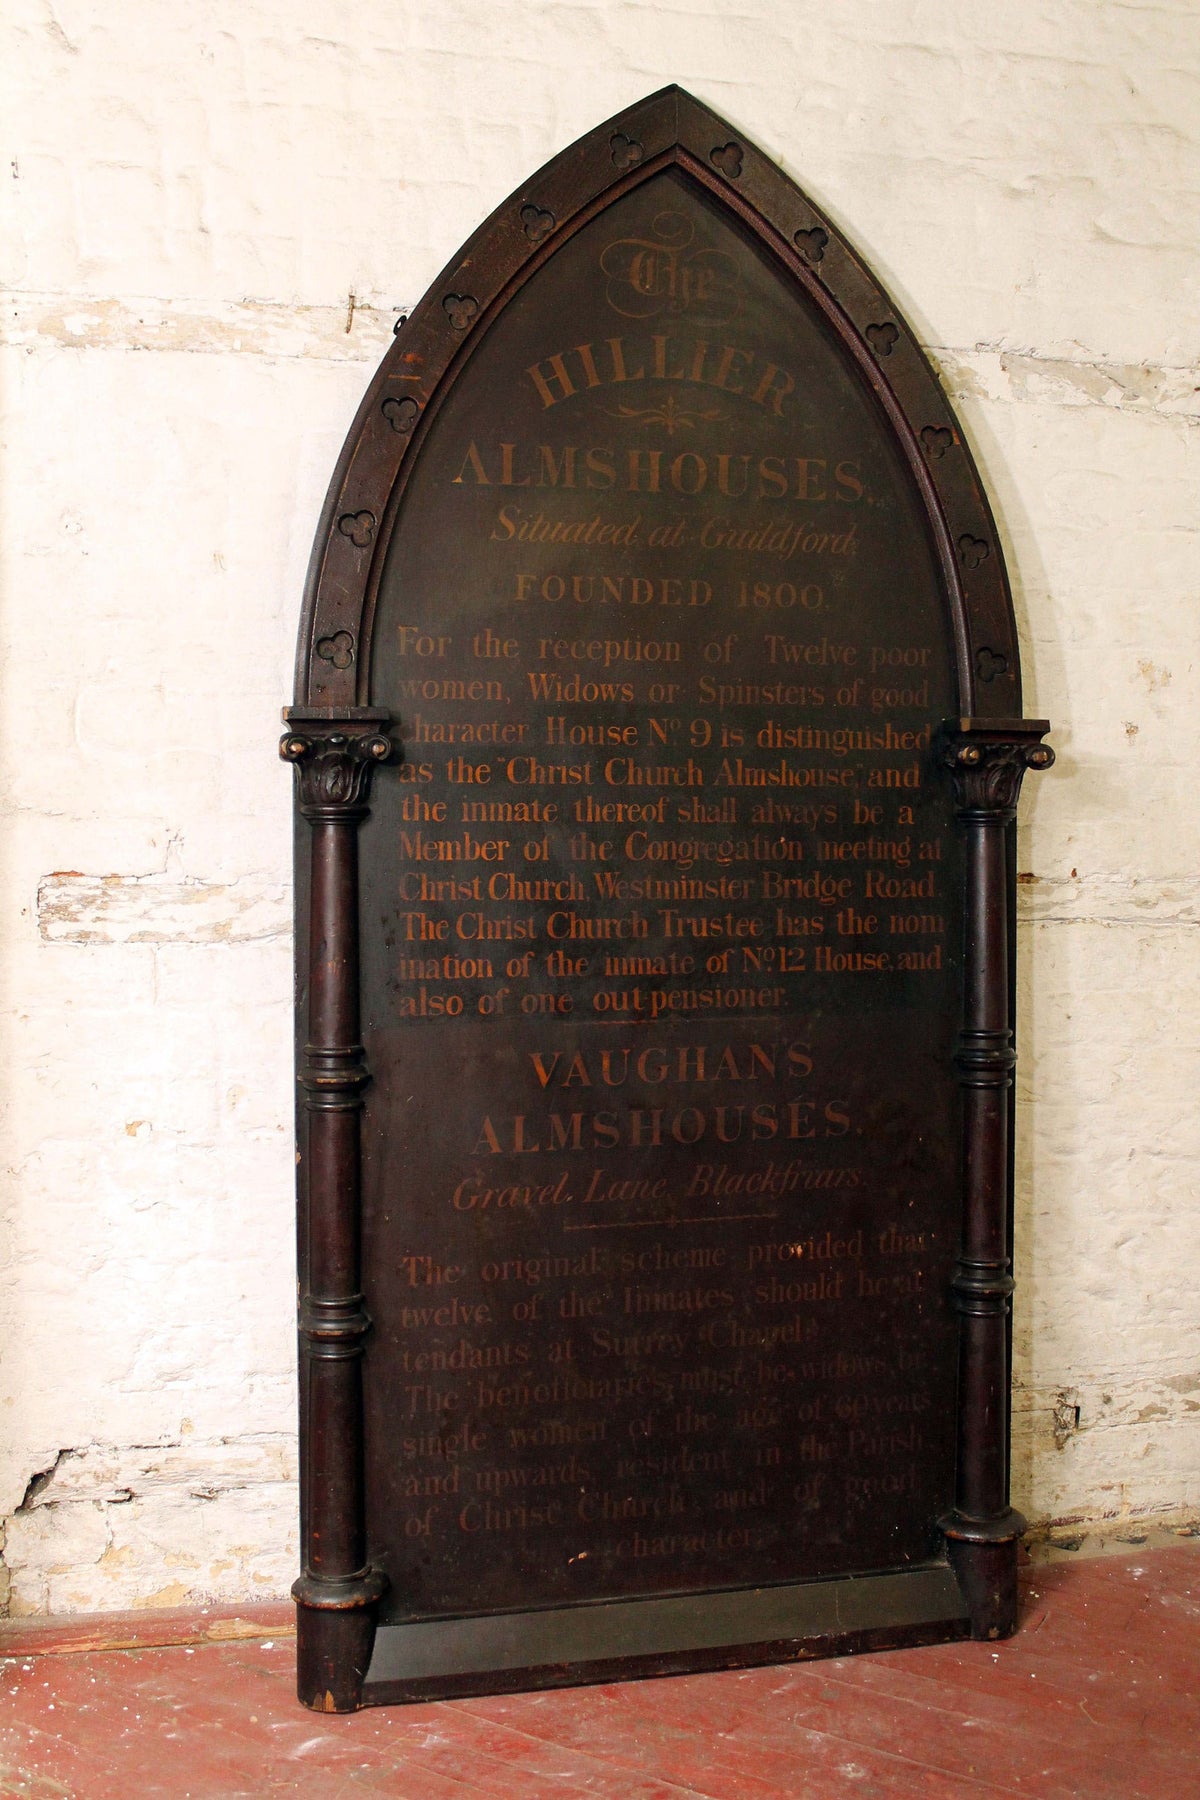 The
HILLIER
ALMSHOUSES.
Situated at Guildford,
FOUNDED 1800.
For the reception of Twelve poor
women, Widows or Spinsters of good
character House No. 9 is distinguished
as the "Christ Church Almshouse," and
the inmate thereof shall always be a
Member of the Congregation meeting at
Christ Church, Westminster Bridge Road.
The Christ Church Trustee has the nom
ination of the inmate of No. 12 House, and
also of one out-pensioner.
VAUGHAN'S
ALMSHOUSES.
Gravel Lane, Blackfriars.
The original scheme provided that
twelve of the Inmates should be at
tendants at Surrey Chapel.
The beneficiaries must be widows or
single women of the age of 60 years
and upwards, resident in the Parish
of Christ Church and of good
character.